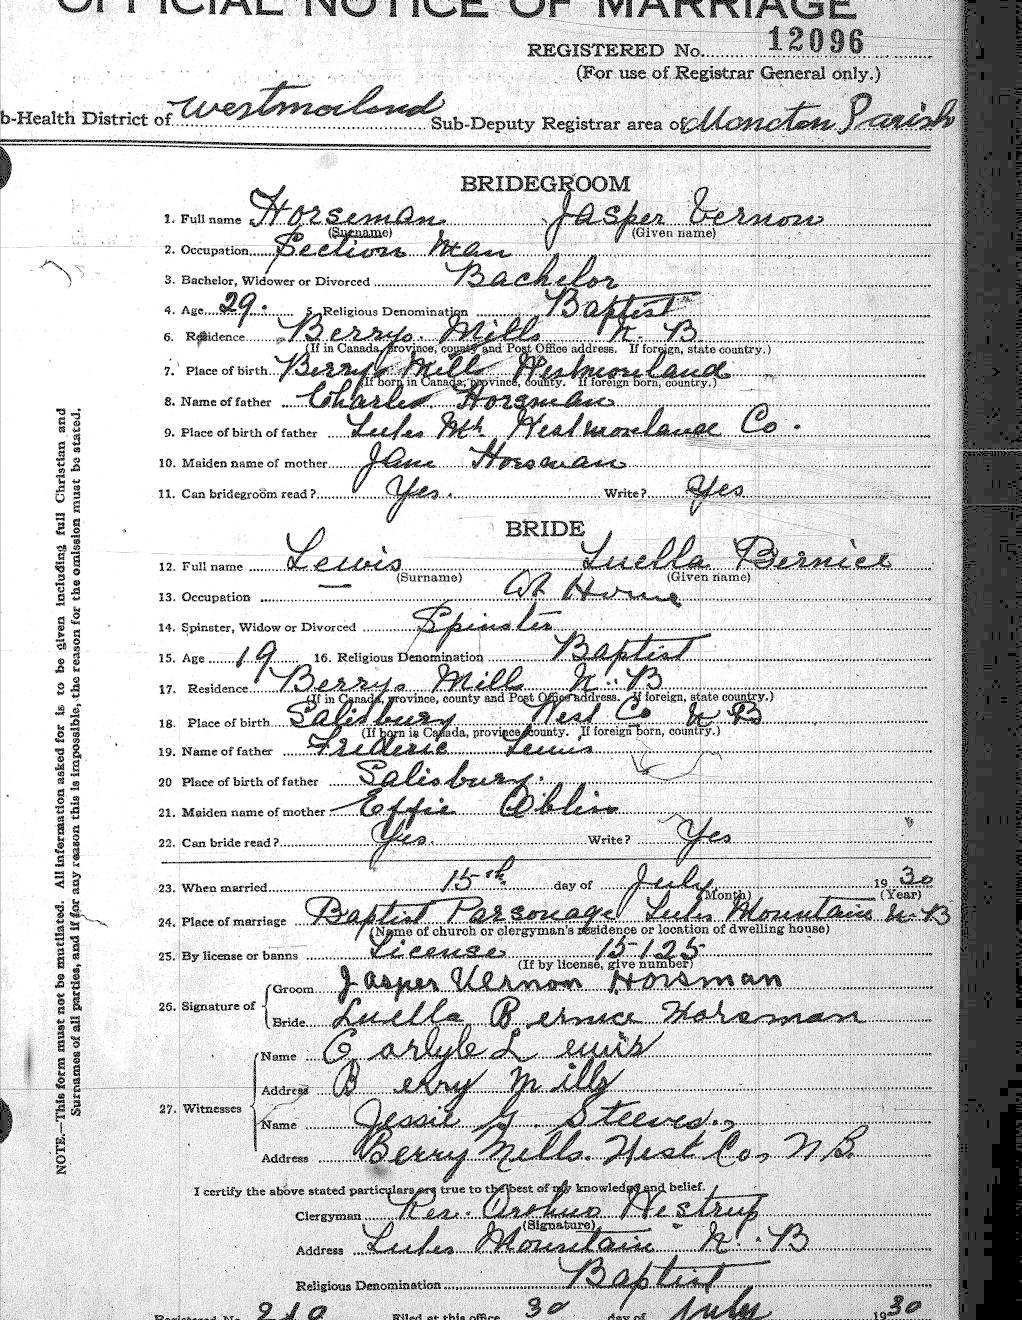 OFFICIAL NOTICE OF MARRIAGE
REGISTERED No. 12096
(For use of Registrar General only.)
b-Health District of Westmorland Sub-Deputy Registrar area of Moncton Parish
BRIDEGROOM
1. Full name Horseman Jasper Vernon
(Surname) (Given name)
2. Occupation Section Man
3. Bachelor, Widower or Divorced Bachelor
4. Age 29. 5. Religious Denomination Baptist
6. Residence Berrys Mills N. B
(If in Canada, province, county and Post Office address. If foreign, state country.)
7. Place of birth Berrys Mills Westmorland
(If born in Canada, province, county. If foreign born, country.)
8. Name of father Charles Horsman
9. Place of birth of father Lutes Mt. Westmorland Co.
10. Maiden name of mother Jane Horsman
11. Can bridegroom read? Yes. Write? Yes
BRIDE
12. Full name Lewis Luella Bernice
(Surname) (Given name)
13. Occupation At Home
14. Spinster, Widow or Divorced Spinster
15. Age 19 16. Religious Denomination Baptist
17. Residence Berrys Mills N. B
(If in Canada, province, county and Post Office address. If foreign, state country.)
18. Place of birth Salisbury West Co N B
(If born in Canada, province, county. If foreign born, country.)
19. Name of father Frederic Lewis
20 Place of birth of father Salisbury.
21. Maiden name of mother Effie
22. Can bride read? Yes. Write? Yes
23. When married 15th day of July 1930
(Month) (Year)
24. Place of marriage Baptist Parsonage Lutes Mountain N. B
(Name of church or clergyman's residence or location of dwelling house)
25. By license or banns License 15125
(If by license, give number)
26. Signature of Groom Jasper Vernon Horsman
Bride Luella Bernice Horsman
27. Witnesses Name Carlyle Lewis
Address Berry Mills
Name Jessie G. Steeves.
Address Berry Mills. West. Co, N B.
I certify the above stated particulars are true to the best of my knowledge and belief.
Clergyman Rev. Westrup
(Signature)
Address Lutes Mountain N. B
Religious Denomination Baptist
Registered No. Filed at this office 30 day of July 1930
NOTE.—This form must not be mutilated. All information asked for is to be given including full Christian and
Surnames of all parties, and if for any reason this is impossible, the reason for the omission must be stated.